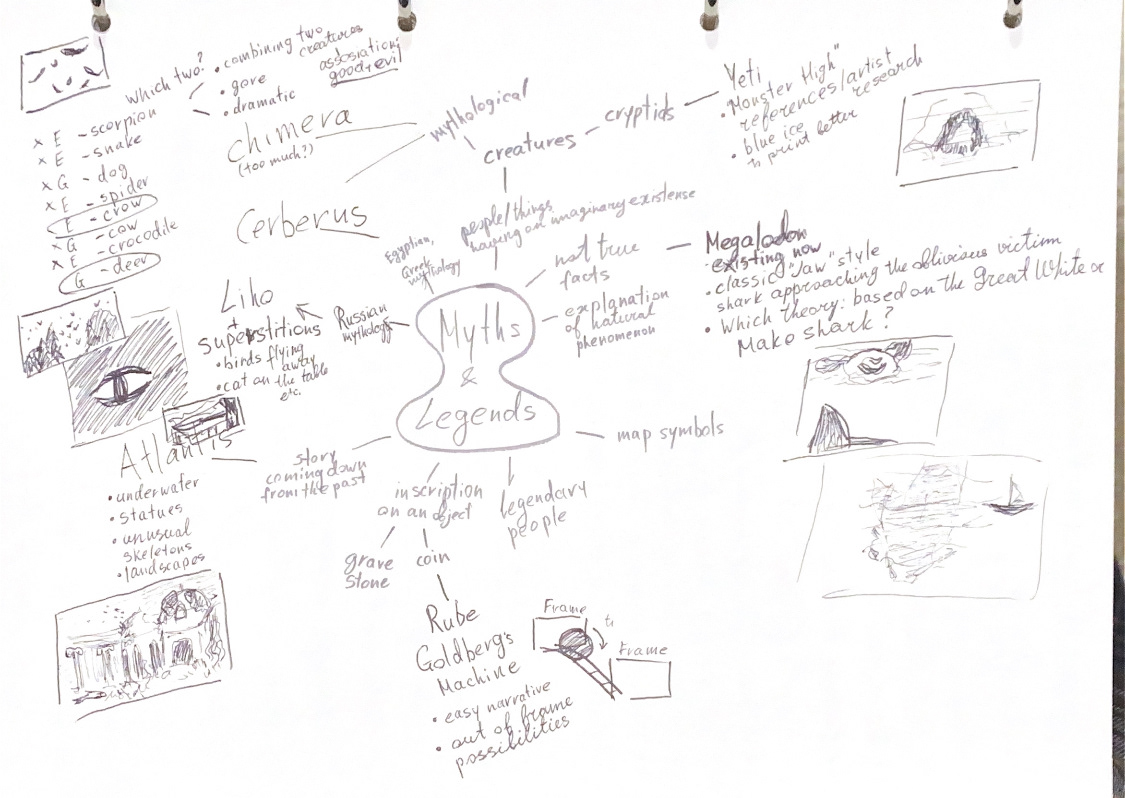 which two?
• combining two
creatures
• gore
• dramatic
assosiation:
good, evil
x E - scorpion
x E - snake
x G - dog
x E - spider
E - crow
x G - cow
x E - crocodile
G - deer
chimera
(too much?)
mythological
creatures
cryptids
Yeti
• "Monster High"
references/artist
research
• blue ice
to print better
people/things
having an imaginary existense
Cerberus
Egyptian,
Greek
mythology
not true
facts
Megalodon
• existing now
• classic "Jaw" style
shark approaching the oblivious victim
• Which theory: based on the Great White or
Mako shark?
explanation
of natural
phenomenon
Liho
+
superstitions
• birds flying
away
• cat on the table
etc.
Russian
mythology
Myths
&
Legends
map symbols
Atlantis
• underwater
• statues
• unusual
skeletons
• landscapes
story
coming down
from the past
inscription
on an object
legendary
people
grave
stone
coin
Rube
Goldberg's
Machine
• easy narrative
• out of frame
possibilities
Frame
Frame